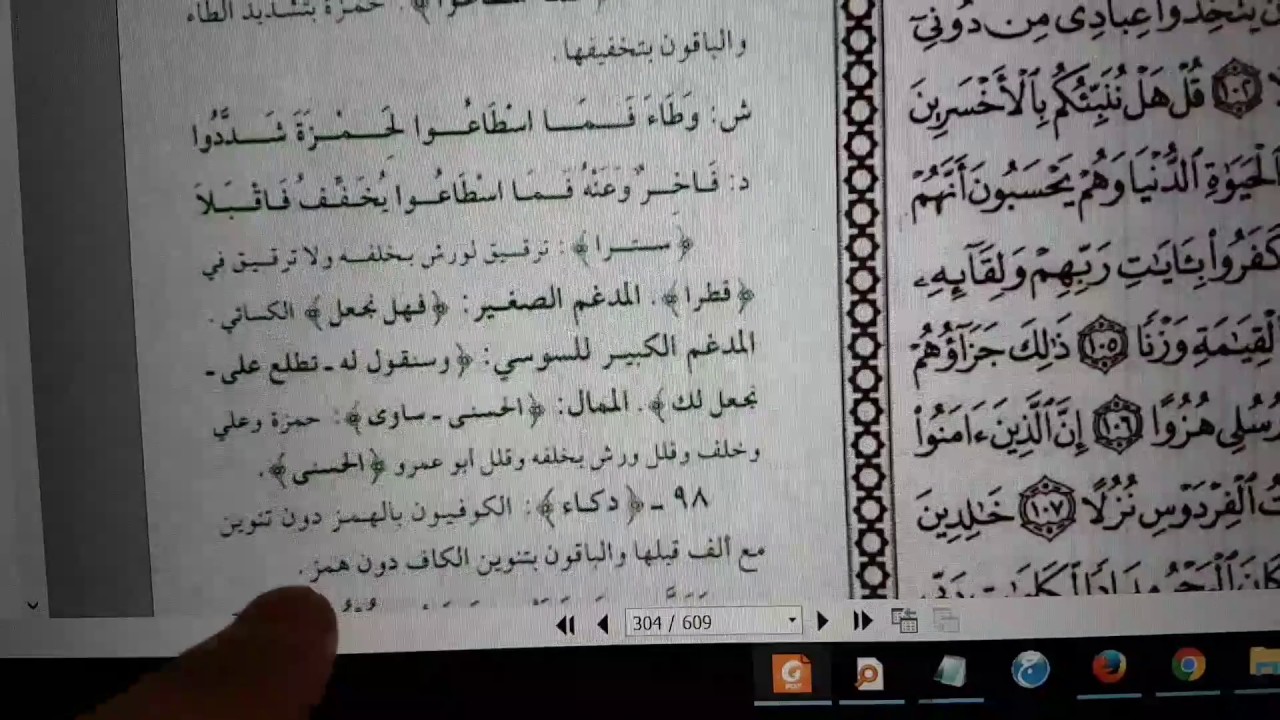 حمزة بتشديد الطاء
والباقون بتخفيفها.
ش: وَطَاءَ فَـمَـا اسْطَاعُـوا لِحَـمْـزَةَ شَـدَّدُوا
د: فَـاخِـرٌ وَعَنْهُ فَـمَا اسْطَاعُـوا يُخَفَّفُ فَـاقْـبَـلاَ
﴿ستـرا﴾: ترقيق لورش بخلفه ولا ترقيق في
﴿قطرا﴾. المدغم الصغير: ﴿فهل نجعل﴾ الكسائي.
المدغم الكبير للسوسي: ﴿وسنقول له ـ تطلع على ـ
نجعل لك﴾. الممال: ﴿الحسنى ـ ساوى﴾: حمزة وعلي
وخلف وقلل ورش بخلفه وقلل ابو عمرو ﴿الحسنى﴾.
٩٨ ـ ﴿دكاء﴾: الكوفيون بالهمز دون تنوين
مع ألف قبلها والباقون بتنوين الكاف دون همز.
يَتَّخِذُوا۟ عِبَادِى مِن دُونِىٓ
١٠٢ قُلْ هَلْ نُنَبِّئُكُم بِٱلْأَخْسَرِينَ
ٱلْحَيَوٰةِ ٱلدُّنْيَا وَهُمْ يَحْسَبُونَ أَنَّهُمْ
كَفَرُوا۟ بِـَٔايَـٰتِ رَبِّهِمْ وَلِقَآئِهِۦ
ٱلْقِيَـٰمَةِ وَزْنًا ١٠٥ ذَٰلِكَ جَزَآؤُهُمْ
وَرُسُلِى هُزُوًا ١٠٦ إِنَّ ٱلَّذِينَ ءَامَنُوا۟
ٱلْفِرْدَوْسِ نُزُلًا ١٠٧ خَـٰلِدِينَ
304 / 609